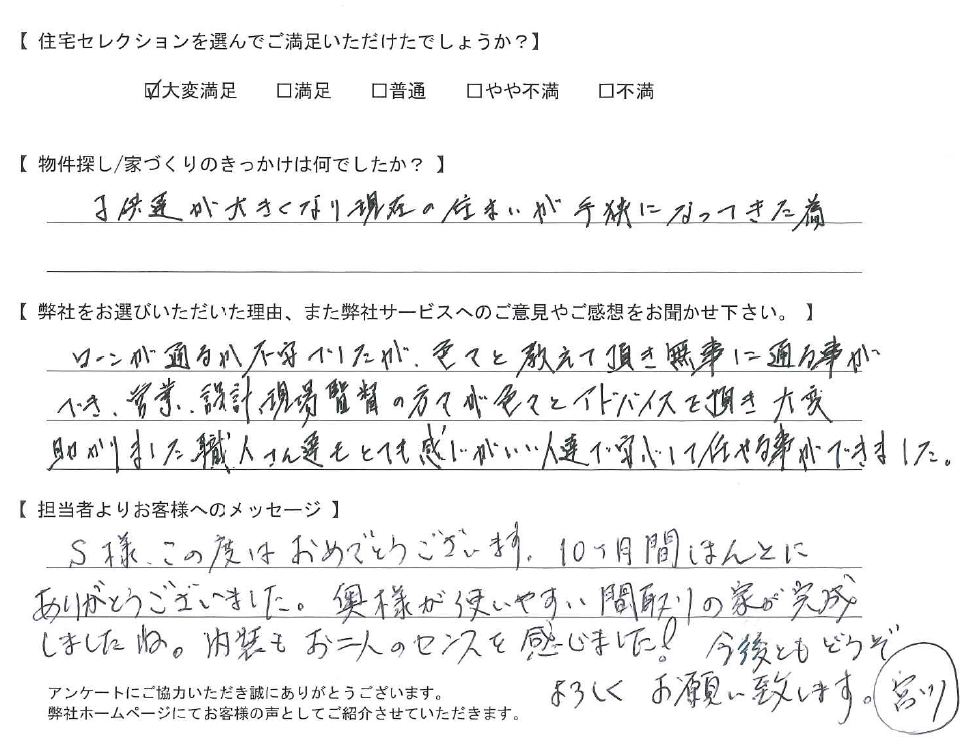 【 住宅セレクションを選んでご満足いただけたでしょうか?】
☑大変満足 □満足 □普通 □やや不満 □不満
【 物件探し/家づくりのきっかけは何でしたか? 】
子供達が大きくなり現在の住まいが手狭になってきた為
【 弊社をお選びいただいた理由、また弊社サービスへのご意見やご感想をお聞かせ下さい。 】
ローンが通るか不安でしたが、色々と教えて頂き無事に通る事が
でき、営業、設計、現場監督の方々が色々とアドバイスを頂き大変
助かりました職人さん達もとても感じがいい人達で安心して任せる事ができました。
【 担当者よりお客様へのメッセージ 】
S様、この度はおめでとうございます。10ヶ月間ほんとに
ありがとうございました。奥様が使いやすい間取りの家が完成
しましたね。内装もお二人のセンスを感じました! 今後ともどうぞ
よろしくお願い致します。宮川
アンケートにご協力いただき誠にありがとうございます。
弊社ホームページにてお客様の声としてご紹介させていただきます。